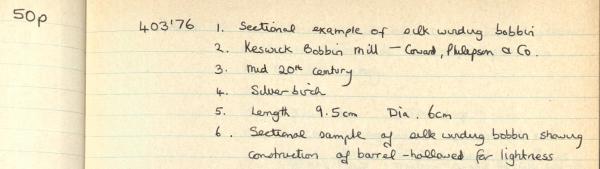 50p
403'76 1. Sectional example of silk winding bobbin
2. Keswick Bobbin Mill - Coward, Philipson & Co.
3. Mid 20th century
4. Silver birch
5. Length 9.5cm Dia. 6cm
6. Sectional sample of silk winding bobbin showing
construction of barrel - hollowed for lightness